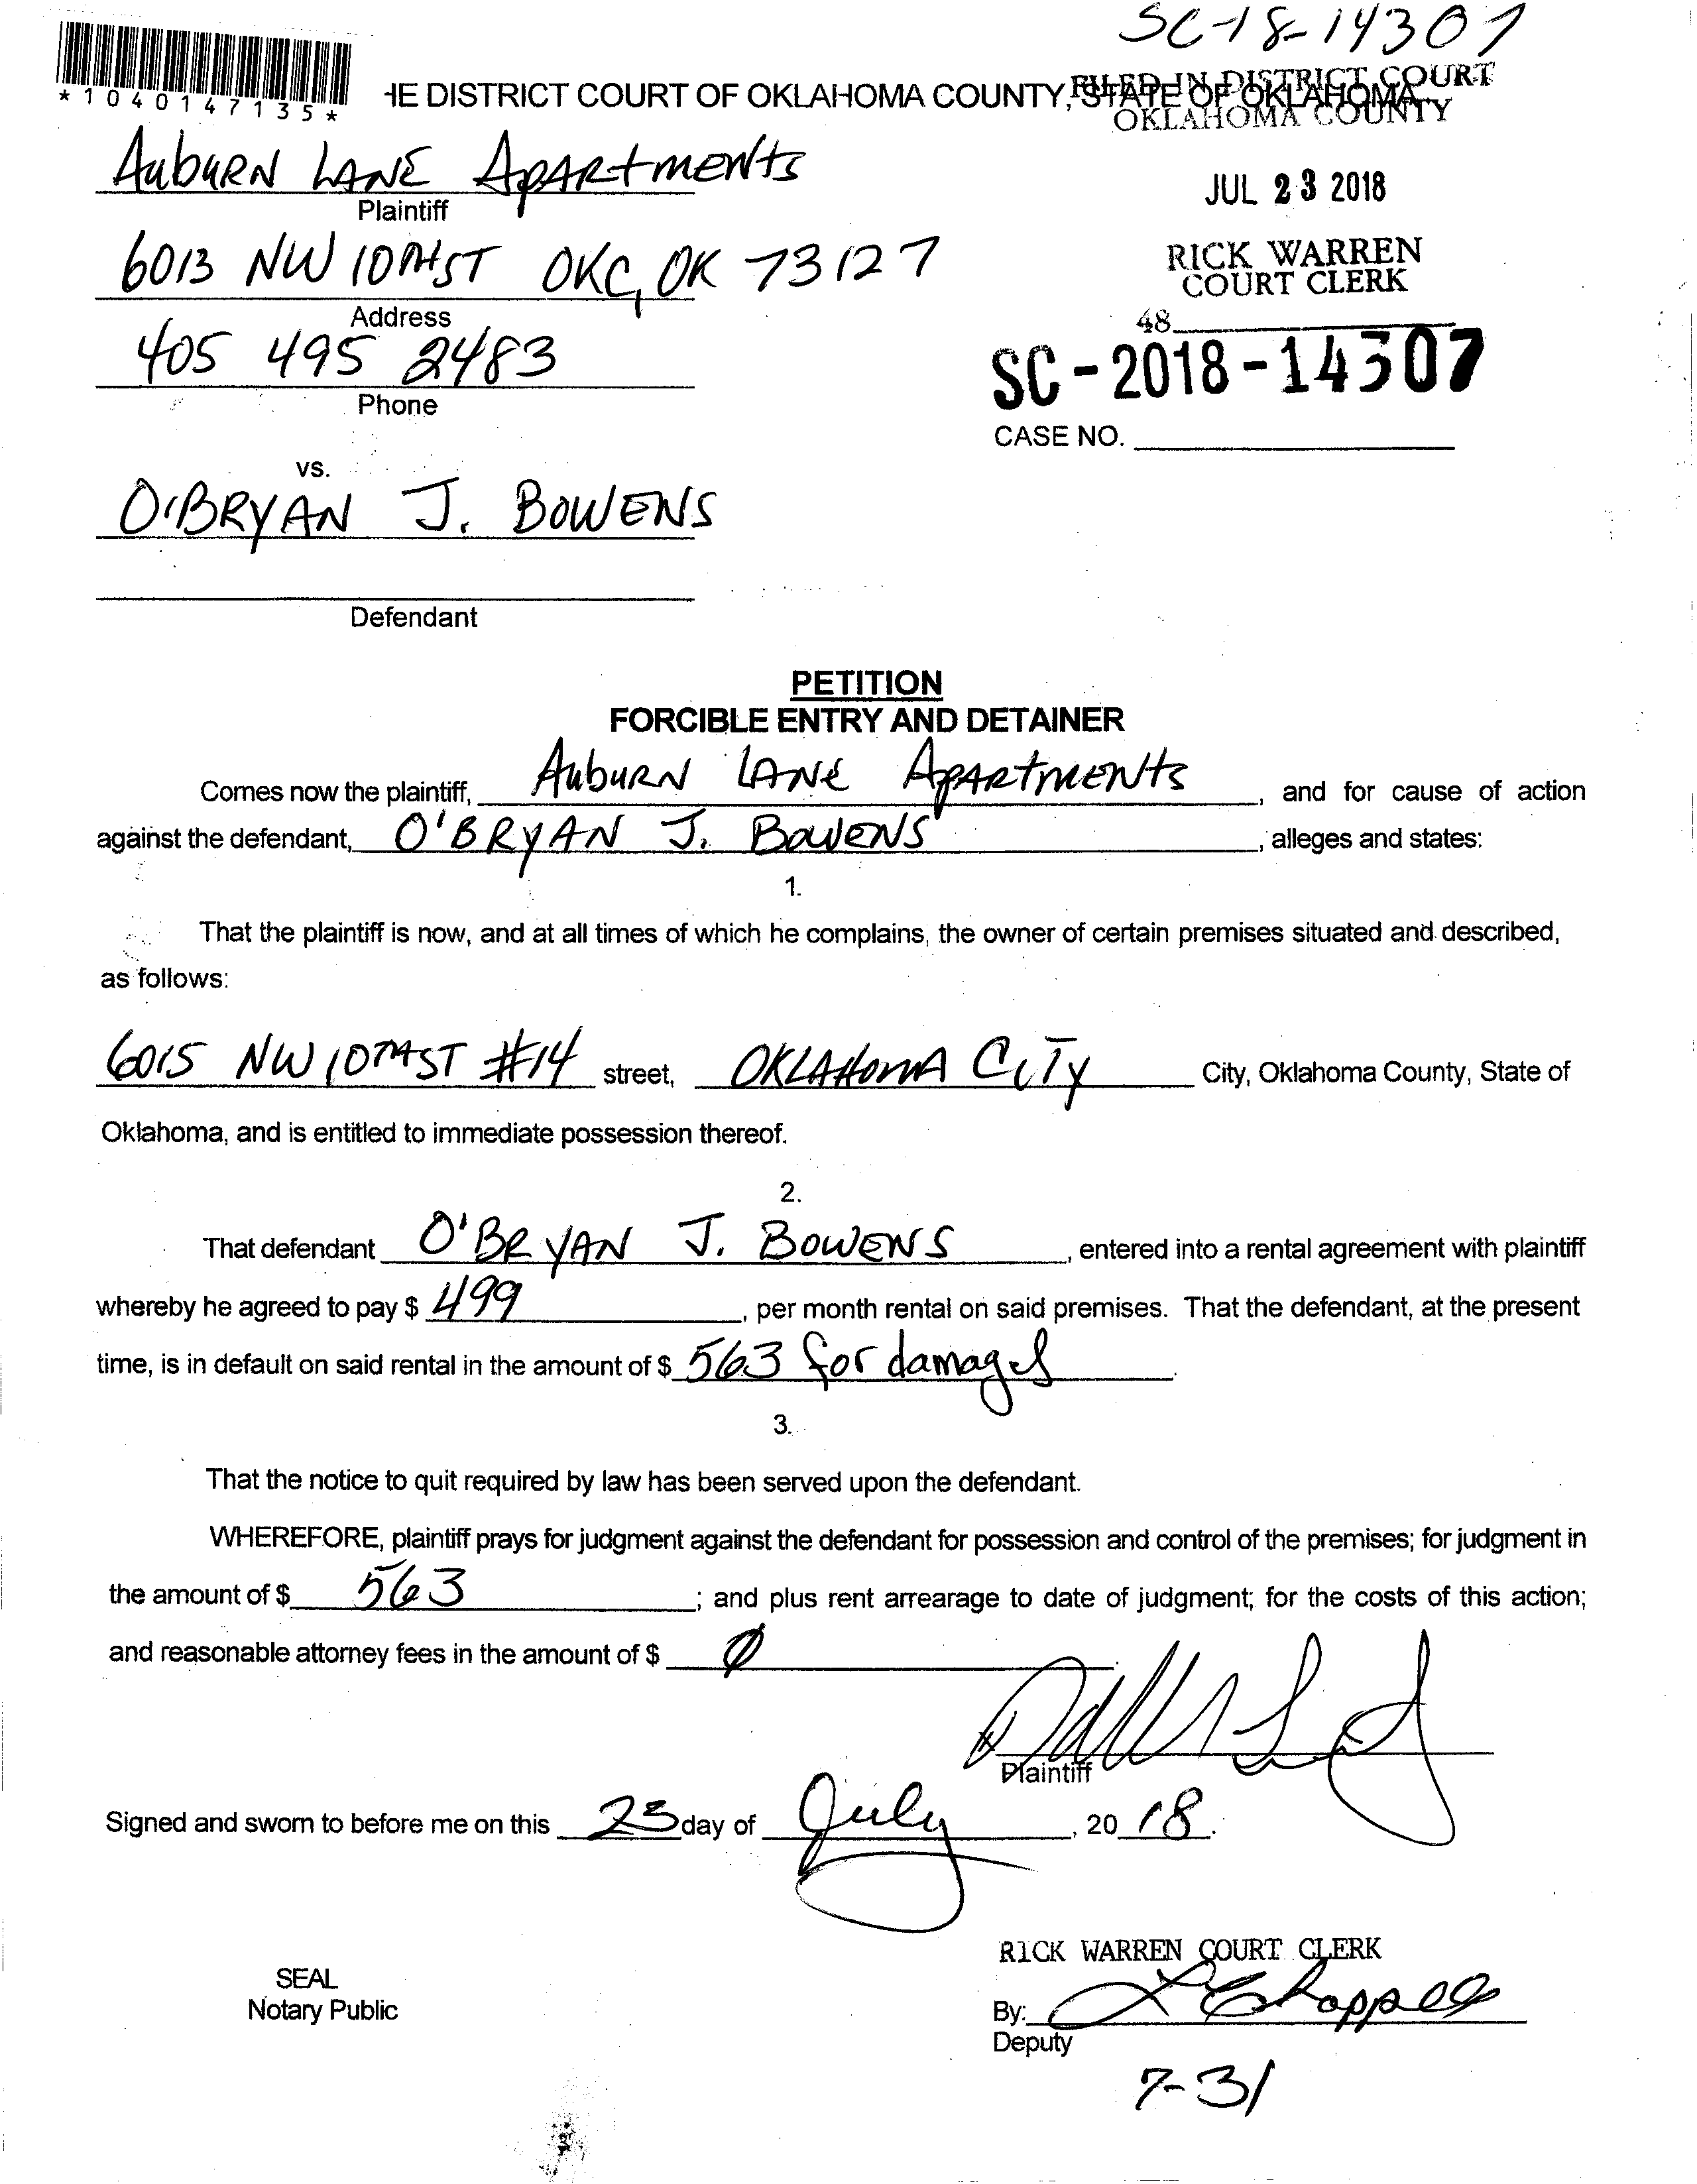 SC-18-14307
*1040147135*
HE DISTRICT COURT OF OKLAHOMA COUNTY, STATE OF OKLAHOMA
FILED IN DISTRICT COURT
OKLAHOMA COUNTY
AubuRN LANE ApARtmENts
Plaintiff
JUL 23 2018
6013 NW 10TH ST OKC, OK 73127
Address
RICK WARREN
COURT CLERK
405 495 2483
Phone
48
SC-2018-14307
CASE NO.
vs.
O'BRYAN J. BOWENS
Defendant
PETITION
FORCIBLE ENTRY AND DETAINER
Comes now the plaintiff, AubuRN LANE ApARtmENts, and for cause of action
against the defendant, O'BRYAN J. BOWENS, alleges and states:
1.
That the plaintiff is now, and at all times of which he complains, the owner of certain premises situated and described,
as follows:
6015 NW 10TH ST #14 street, OKLAHOMA CITY City, Oklahoma County, State of
Oklahoma, and is entitled to immediate possession thereof.
2.
That defendant O'BRYAN J. BOWENS, entered into a rental agreement with plaintiff
whereby he agreed to pay $ 499, per month rental on said premises. That the defendant, at the present
time, is in default on said rental in the amount of $ 563 for damages.
3.
That the notice to quit required by law has been served upon the defendant.
WHEREFORE, plaintiff prays for judgment against the defendant for possession and control of the premises; for judgment in
the amount of $ 563; and plus rent arrearage to date of judgment; for the costs of this action;
and reasonable attorney fees in the amount of $ 0
Plaintiff
Signed and sworn to before me on this 23 day of July, 2018.
RICK WARREN COURT CLERK
SEAL
Notary Public
By: L Chappell
Deputy
7-31